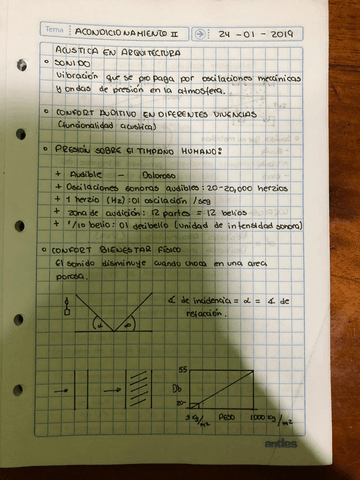 Tema: ACONDICIONAMIENTO II 24-01-2019
ACUSTICA EN ARQUITECTURA
° SONIDO
Vibración que se propaga por oscilaciones mecánicas
y ondas de presión en la atmosfera.
° CONFORT AUDITIVO EN DIFERENTES VIVENCIAS
(funcionalidad acustica)
° PRESIÓN SOBRE El TIMPANO HUMANO:
+ Audible — Doloroso
+ Oscilaciones sonoras audibles: 20-20,000 herzios
+ 1 herzio (Hz): 01 oscilación /seg
+ zona de audición: 12 partes = 12 belios
+ 1/10 belio: 01 decibelio (unidad de intensidad sonora)
° CONFORT BIENESTAR FÍSICO
El sonido disminuye cuando choca en una area
porosa.
∡ de incidencia = α = ∡ de
refracción.
α
55
Db
Kg/m2 PESO 1000 Kg/m2